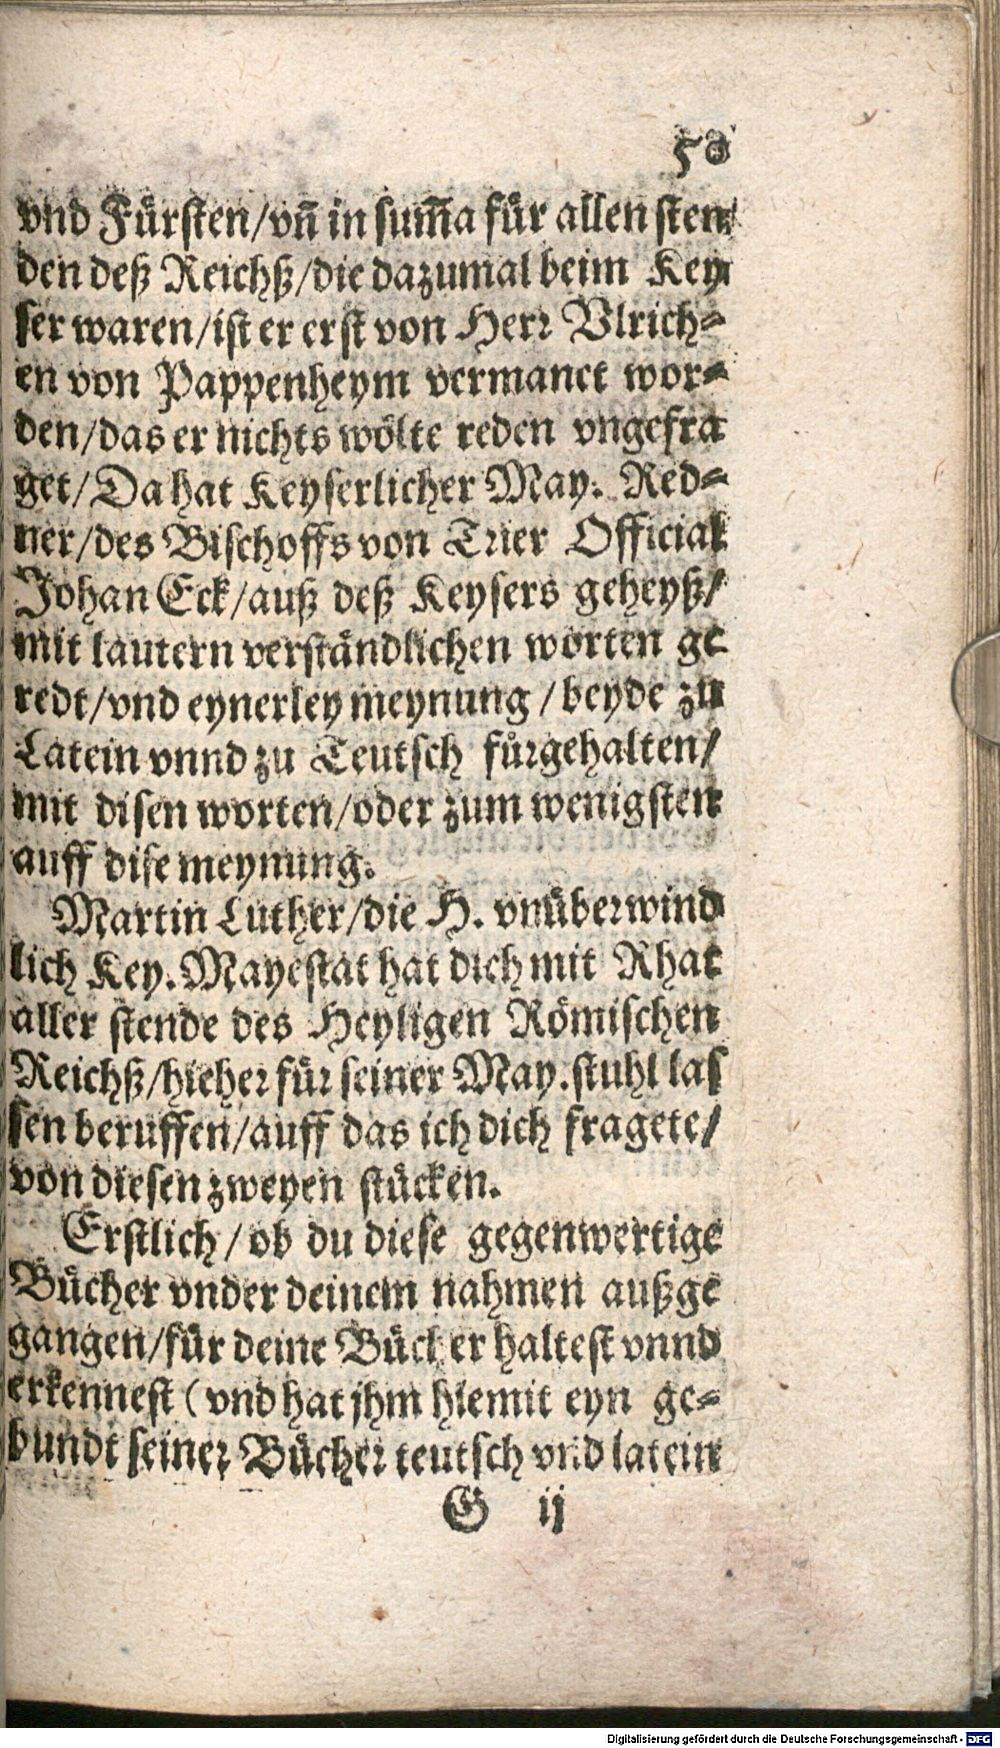 50
vnd Fürsten/vñ in sum̃a für allen sten/
den deß Reichß/die dazumal beim Key
ser waren/ist er erst von Herr Vlrich⸗
en von Pappenheym vermanet wor⸗
den/das er nichts wölte reden vngefra
get/Da hat Keyserlicher May. Red⸗
ner/des Bischoffs von Trier Official
Johan Eck/auß deß Keysers geheyß/
mit lautern verständlichen worten ge
redt/vnd eynerley meynung/beyde zu
Latein vnnd zu Teutsch fürgehalten/
mit disen worten/oder zum wenigsten
auff dise meynung.
Martin Luther/die H. vnüberwind
lich Key. Mayestat hat dich mit Rhat
aller stende des Heyligen Römischen
Reichß/hieher für seiner May. stuhl las
sen beruffen/auff das ich dich fragete/
von diesen zweyen stücken.
Erstlich/ob du diese gegenwertige
Bücher vnder deinem nahmen außge
gangen/für deine Bücher haltest vnnd
erkennest (vnd hat jhm hiemit eyn ge⸗
bundt seiner Bücher teutsch vnd latein
G ij
Digitalisierung gefördert durch die Deutsche Forschungsgemeinschaft - DFG